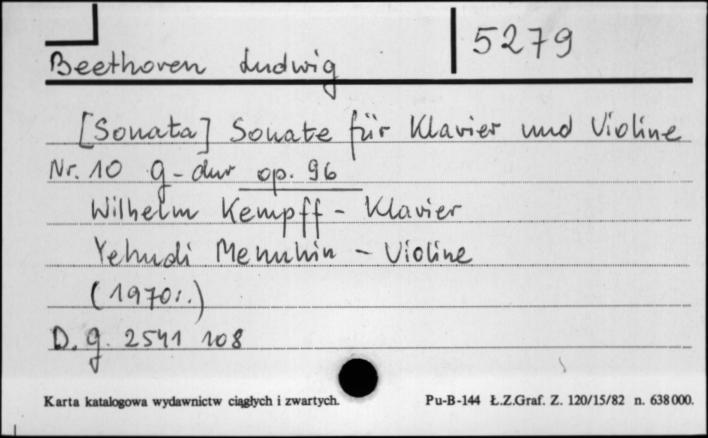 5279
Beethoven Ludwig
[Sonata] Sonate für Klavier und Violine
Nr. 10 g-dur op. 96
Wilhelm Kempff - Klavier
Yehudi Menuhin - Violine
(1970:.)
D.g. 2541 108
Karta katalogowa wydawnictw ciągłych i zwartych. Pu-B-144 Ł.Z.Graf. Z. 120/15/82 n. 638000.